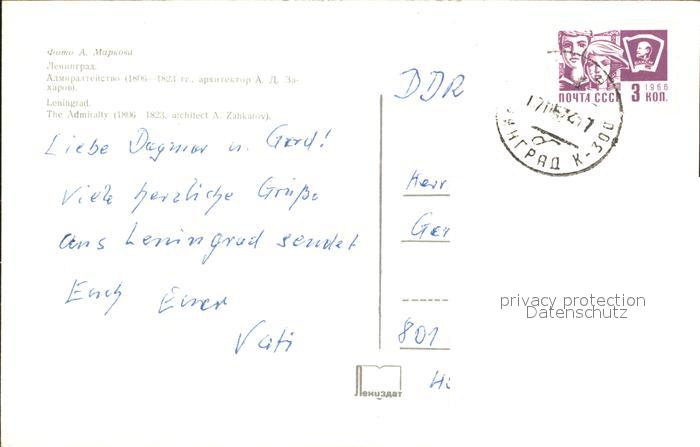 Фото А. Маркова
Ленинград.
Адмиралтейство (1806—1823 гг., архитектор А. Д. Захаров).
Leningrad.
The Admiralty (1806—1823, architect A. Zahkatov).
Liebe Dagmar u. Gerd!
Viele herzliche Grüße
aus Leningrad sendet
Euch Euer
Vati
DDR
ПОЧТА СССР
1966
3 КОП.
К-300
Herr
Ger
801
privacy protection
Datenschutz
Лениздат